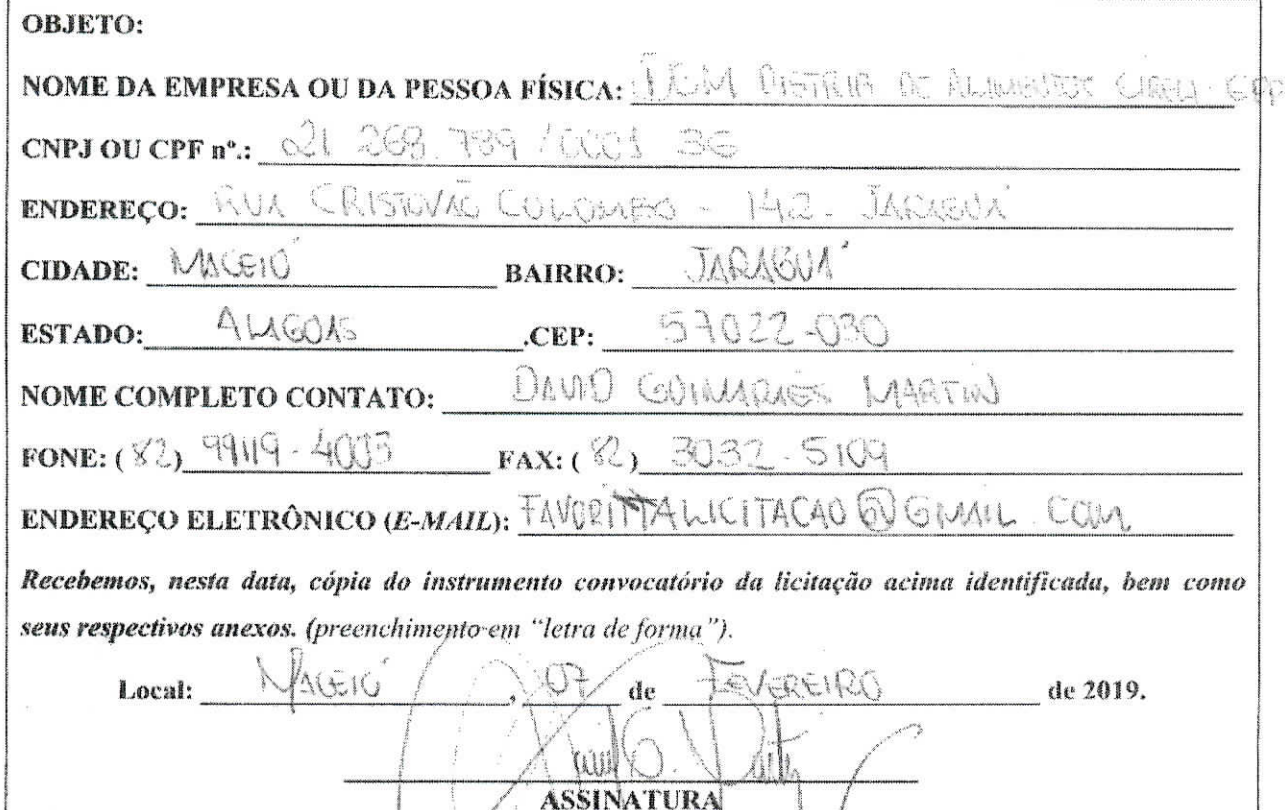 OBJETO:
NOME DA EMPRESA OU DA PESSOA FÍSICA: DISTRIB DE ALIMENTOS EIRELI - EPP
CNPJ OU CPF nº.: 21 268.789 / 0001 36
ENDEREÇO: RUA CRISTOVÃO COLOMBO - 142 - JARAGUÁ
CIDADE: MACEIÓ BAIRRO: JARAGUÁ
ESTADO: ALAGOAS .CEP: 57022-030
NOME COMPLETO CONTATO: DAVID GUIMARAES MARTIN
FONE: (82) 99119-4003 FAX: (82) 3032-5109
ENDEREÇO ELETRÔNICO (E-MAIL): FAVORITTALICITACAO@GMAIL.COM
Recebemos, nesta data, cópia do instrumento convocatório da licitação acima identificada, bem como
seus respectivos anexos. (preenchimento em "letra de forma").
Local: MACEIÓ, 07 de FEVEREIRO de 2019.
ASSINATURA